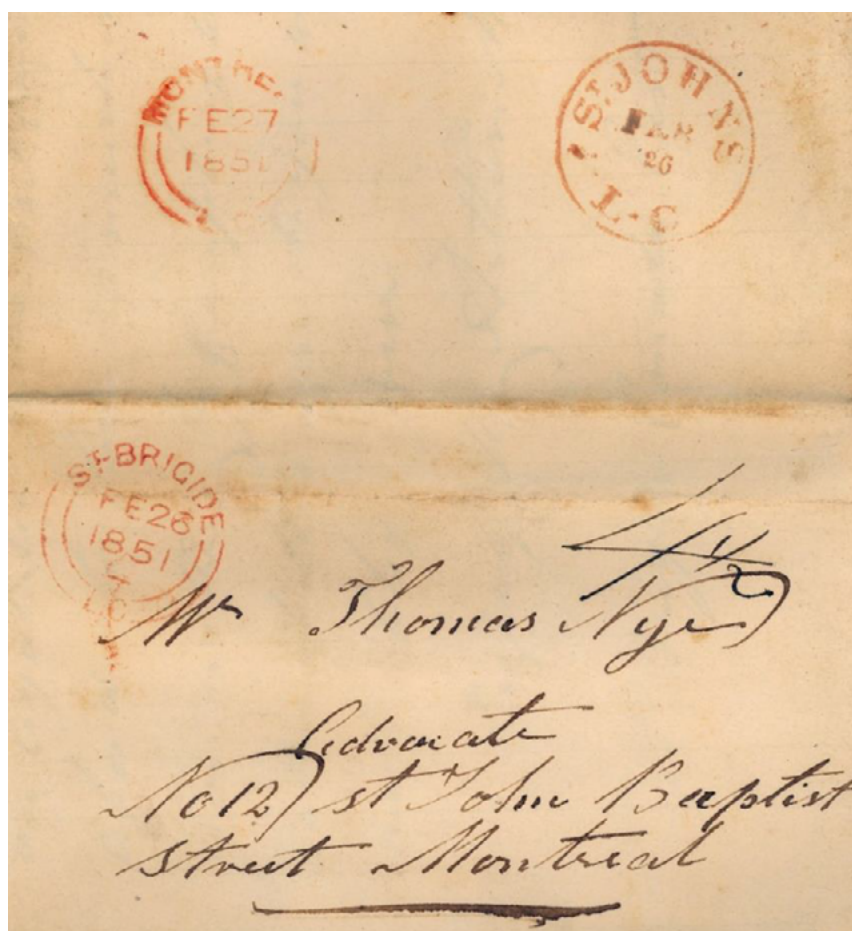 MONTRE
FE 27
1851
L C
ST JOHNS
FEB
26
L·C
ST BRIGIDE
FE 26
1851
L C
4 1/2
Mr Thomas Nye
Advocate
No 12) st John Baptist
street Montreal